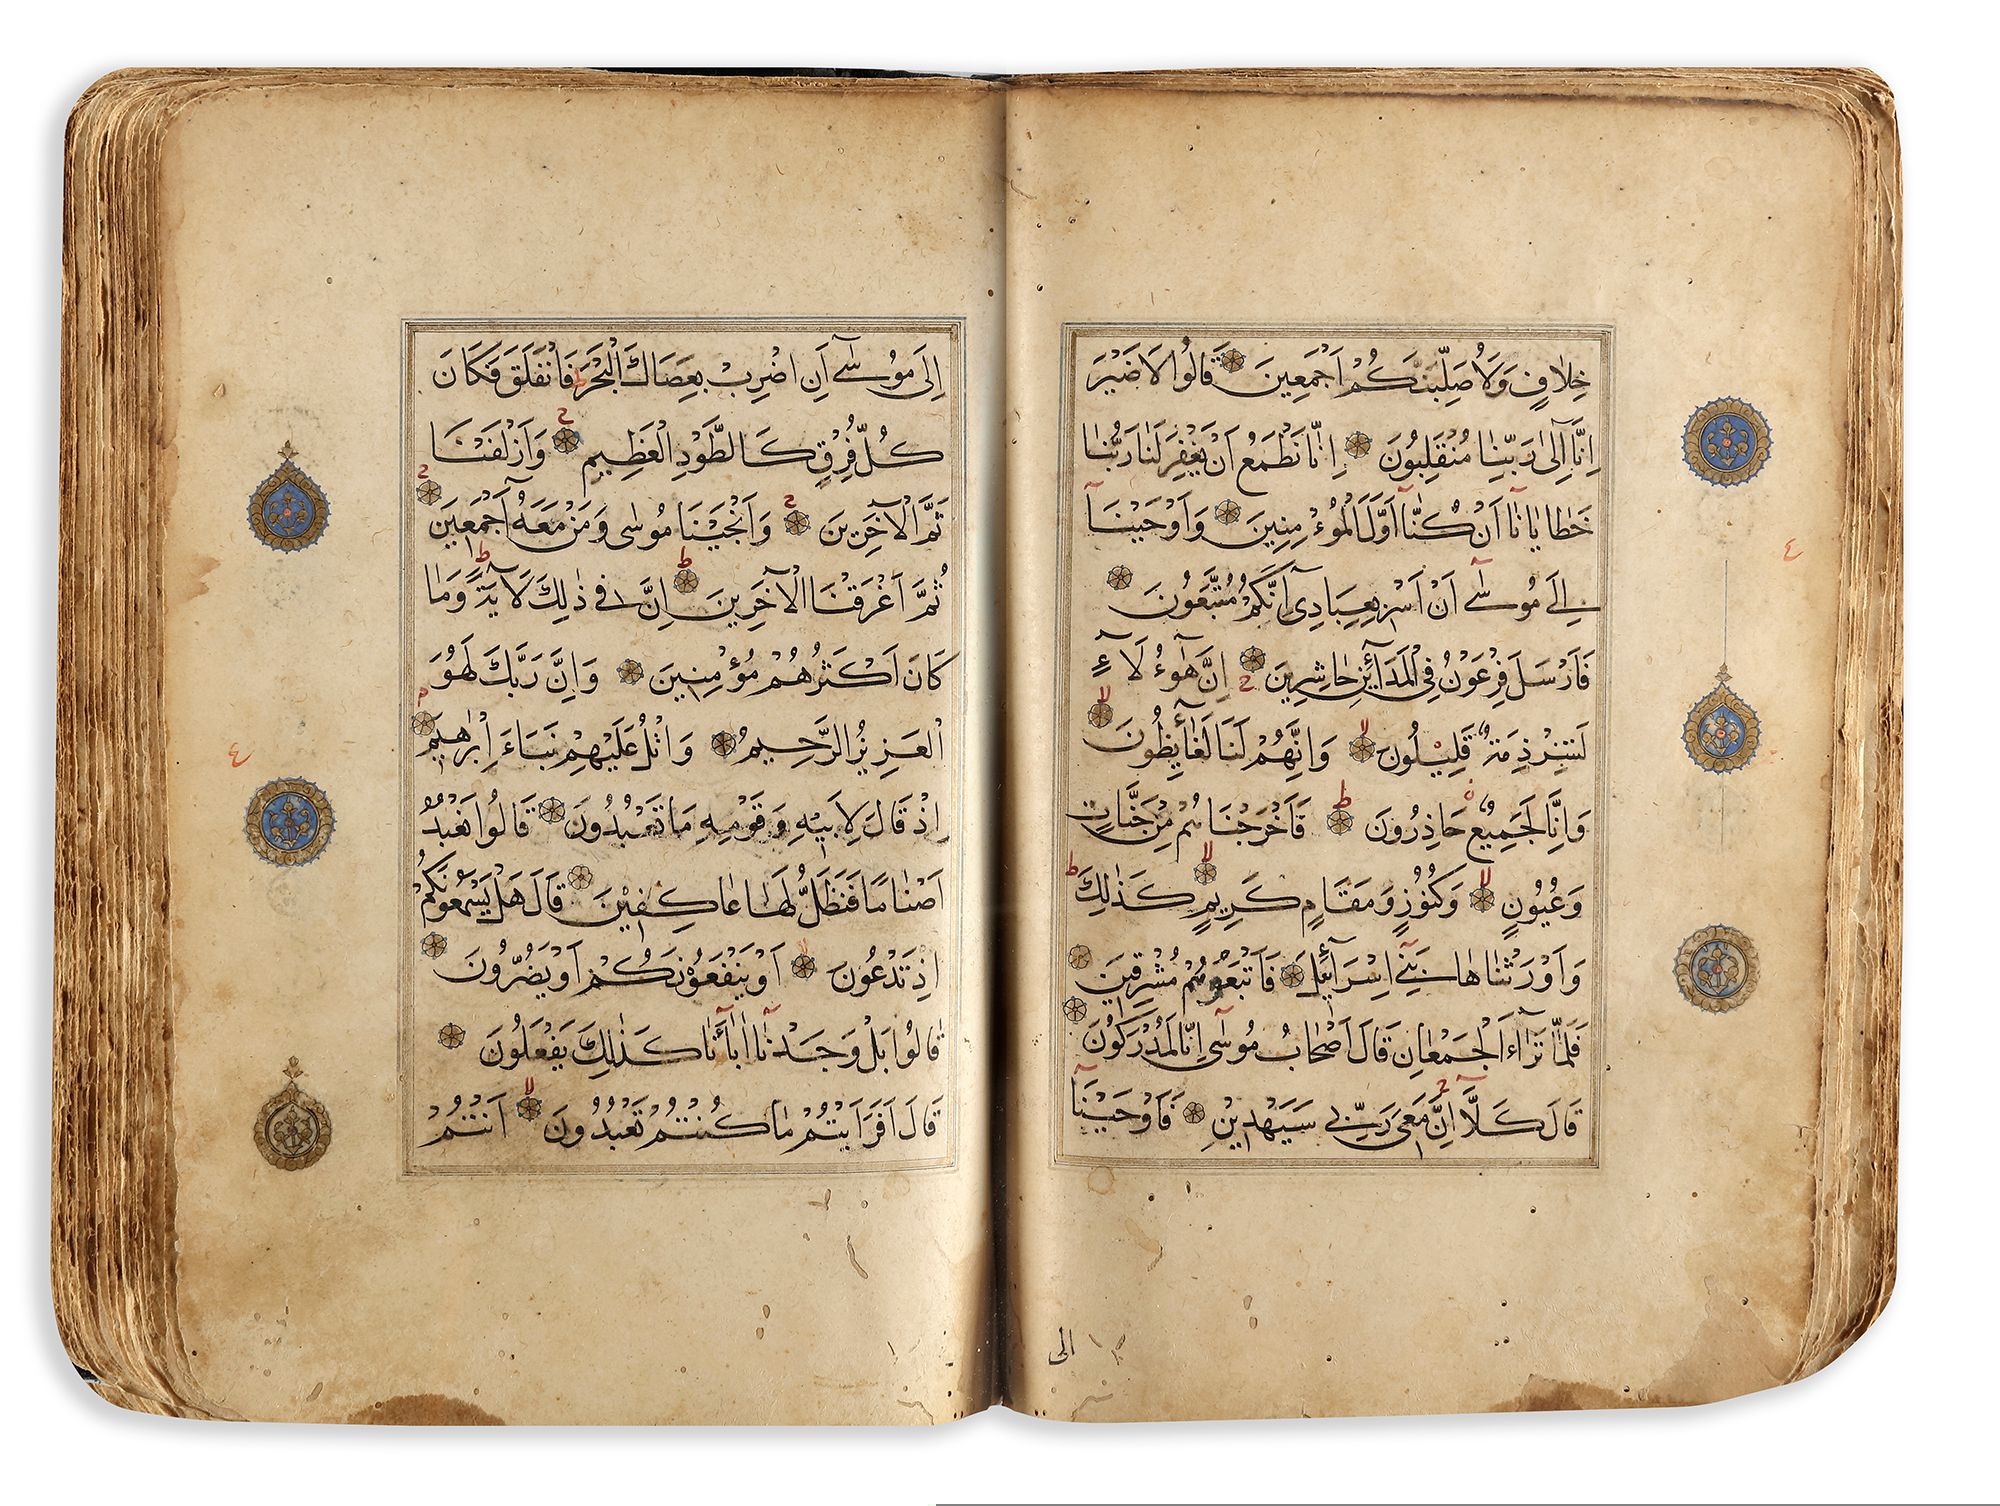 خِلَافٍ وَلَأُصَلِّبَنَّكُمْ أَجْمَعِينَ قَالُوا لَا ضَيْرَ
اِنَّا إِلَىٰ رَبِّنَا مُنْقَلِبُونَ اِنَّا نَطْمَعُ اَنْ يَغْفِرَ لَنَا رَبُّنَا
خَطَايَانَا اَنْ كُنَّا اَوَّلَ الْمُؤْمِنِينَ وَاَوْحَيْنَا
اِلَى مُوسَى اَنْ اَسْرِ بِعِبَادِي اِنَّكُمْ مُتَّبَعُونَ
فَاَرْسَلَ فِرْعَوْنُ فِي الْمَدَائِنِ حَاشِرِينَ ح اِنَّ هٰؤُلَاءِ
لَشِرْذِمَةٌ قَلِيلُونَ لا وَاِنَّهُمْ لَنَا لَغَائِظُونَ لا
وَاِنَّا لَجَمِيعٌ حَاذِرُونَ ط فَاَخْرَجْنَاهُمْ مِنْ جَنَّاتٍ
وَعُيُونٍ لا وَكُنُوزٍ وَمَقَامٍ كَرِيمٍ لا كَذٰلِكَ ط
وَاَوْرَثْنَاهَا بَنِي اِسْرَائِيلَ فَاَتْبَعُوهُمْ مُشْرِقِينَ
فَلَمَّا تَرَاءَ الْجَمْعَانِ قَالَ اَصْحَابُ مُوسَى اِنَّا لَمُدْرَكُونَ
قَالَ كَلَّا ح اِنَّ مَعِيَ رَبِّي سَيَهْدِينِ فَاَوْحَيْنَا
الى
ع
اِلَى مُوسَى اَنِ اضْرِبْ بِعَصَاكَ الْبَحْرَ ط فَانْفَلَقَ فَكَانَ
كُلُّ فِرْقٍ كَالطَّوْدِ الْعَظِيمِ ح وَاَزْلَفْنَا
ثَمَّ الْاٰخَرِينَ ح وَاَنْجَيْنَا مُوسَى وَمَنْ مَعَهُ اَجْمَعِينَ ح
ثُمَّ اَغْرَقْنَا الْاٰخَرِينَ ط اِنَّ فِي ذٰلِكَ لَاٰيَةً ط وَمَا
كَانَ اَكْثَرُهُمْ مُؤْمِنِينَ وَاِنَّ رَبَّكَ لَهُوَ
الْعَزِيزُ الرَّحِيمُ وَاتْلُ عَلَيْهِمْ نَبَاَ اِبْرٰهِيمَ م
اِذْ قَالَ لِاَبِيهِ وَقَوْمِهِ مَا تَعْبُدُونَ قَالُوا نَعْبُدُ
اَصْنَامًا فَنَظَلُّ لَهَا عَاكِفِينَ قَالَ هَلْ يَسْمَعُونَكُمْ
اِذْ تَدْعُونَ لا اَوْ يَنْفَعُونَكُمْ اَوْ يَضُرُّونَ
قَالُوا بَلْ وَجَدْنَا اٰبَاءَنَا كَذٰلِكَ يَفْعَلُونَ
قَالَ اَفَرَاَيْتُمْ مَا كُنْتُمْ تَعْبُدُونَ لا اَنْتُمْ
ع